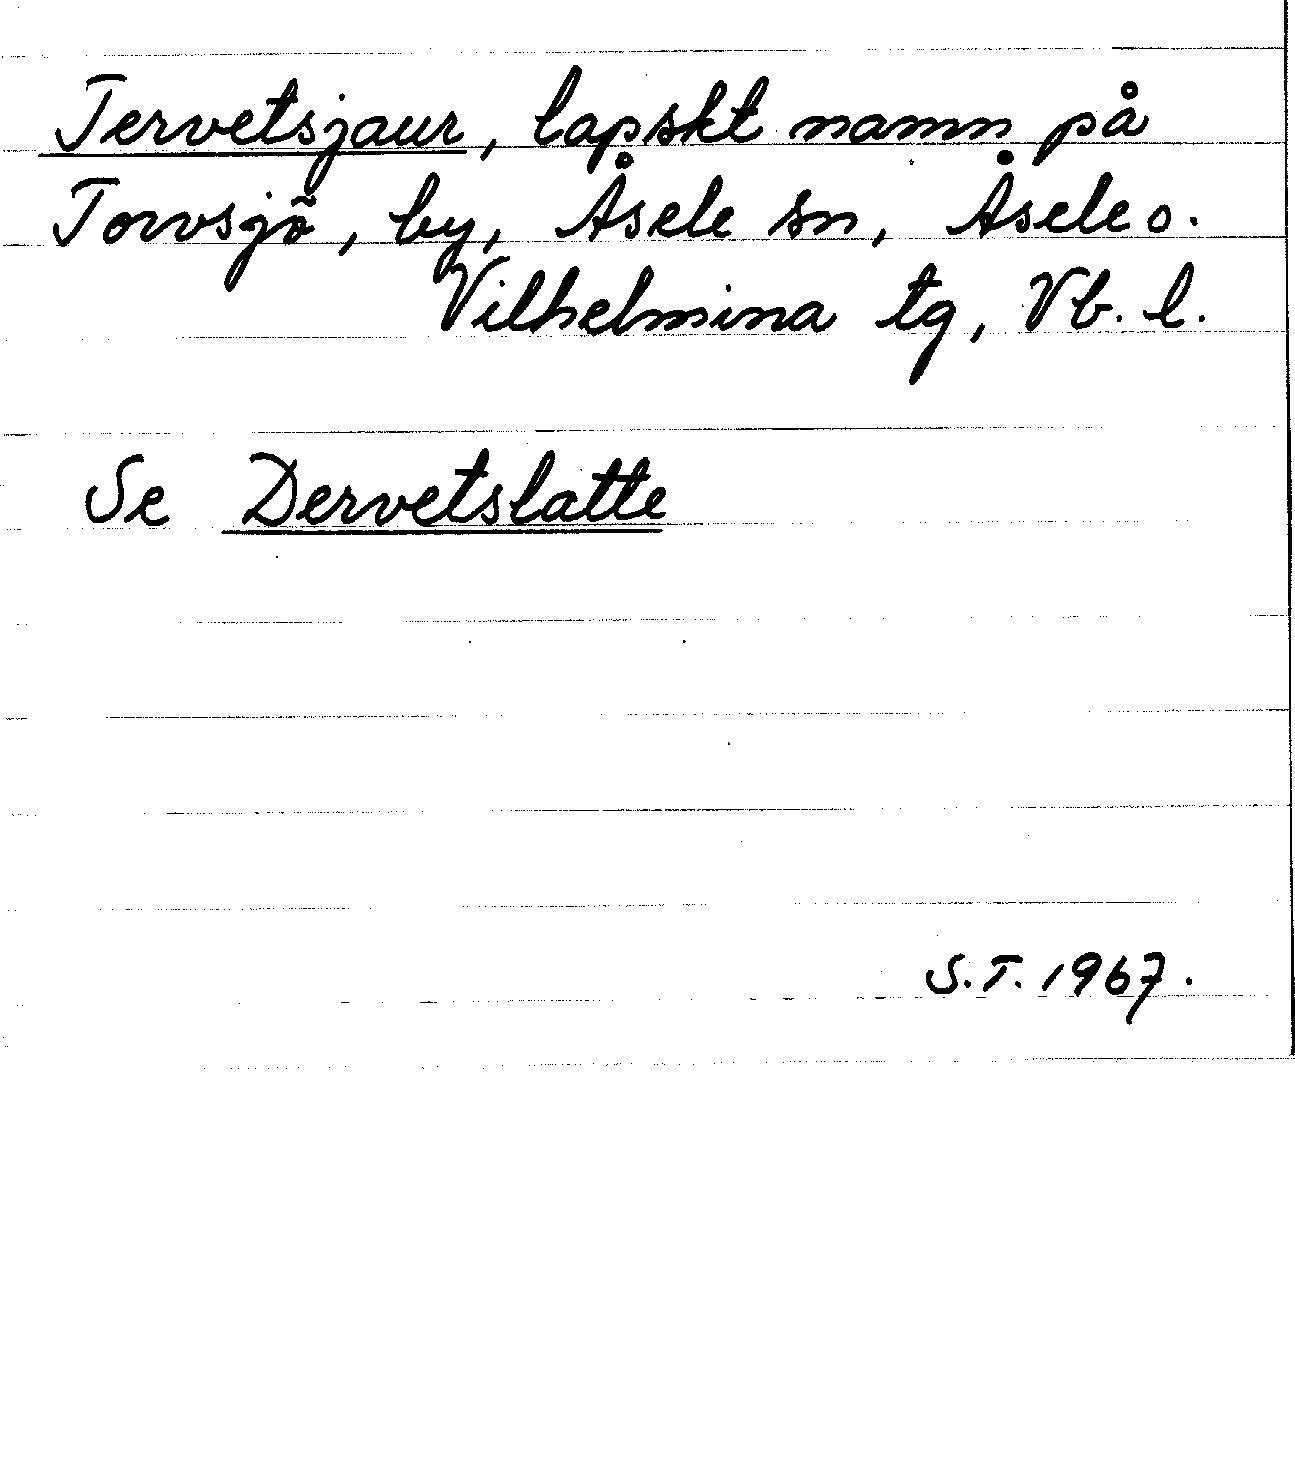 Tervetsjaur, lapskt namn på
Torvsjö, by, Åsele sn, Åsele o.
Vilhelmina tg, Vb. l.
Se Dervetslatte
S.T. 1967.